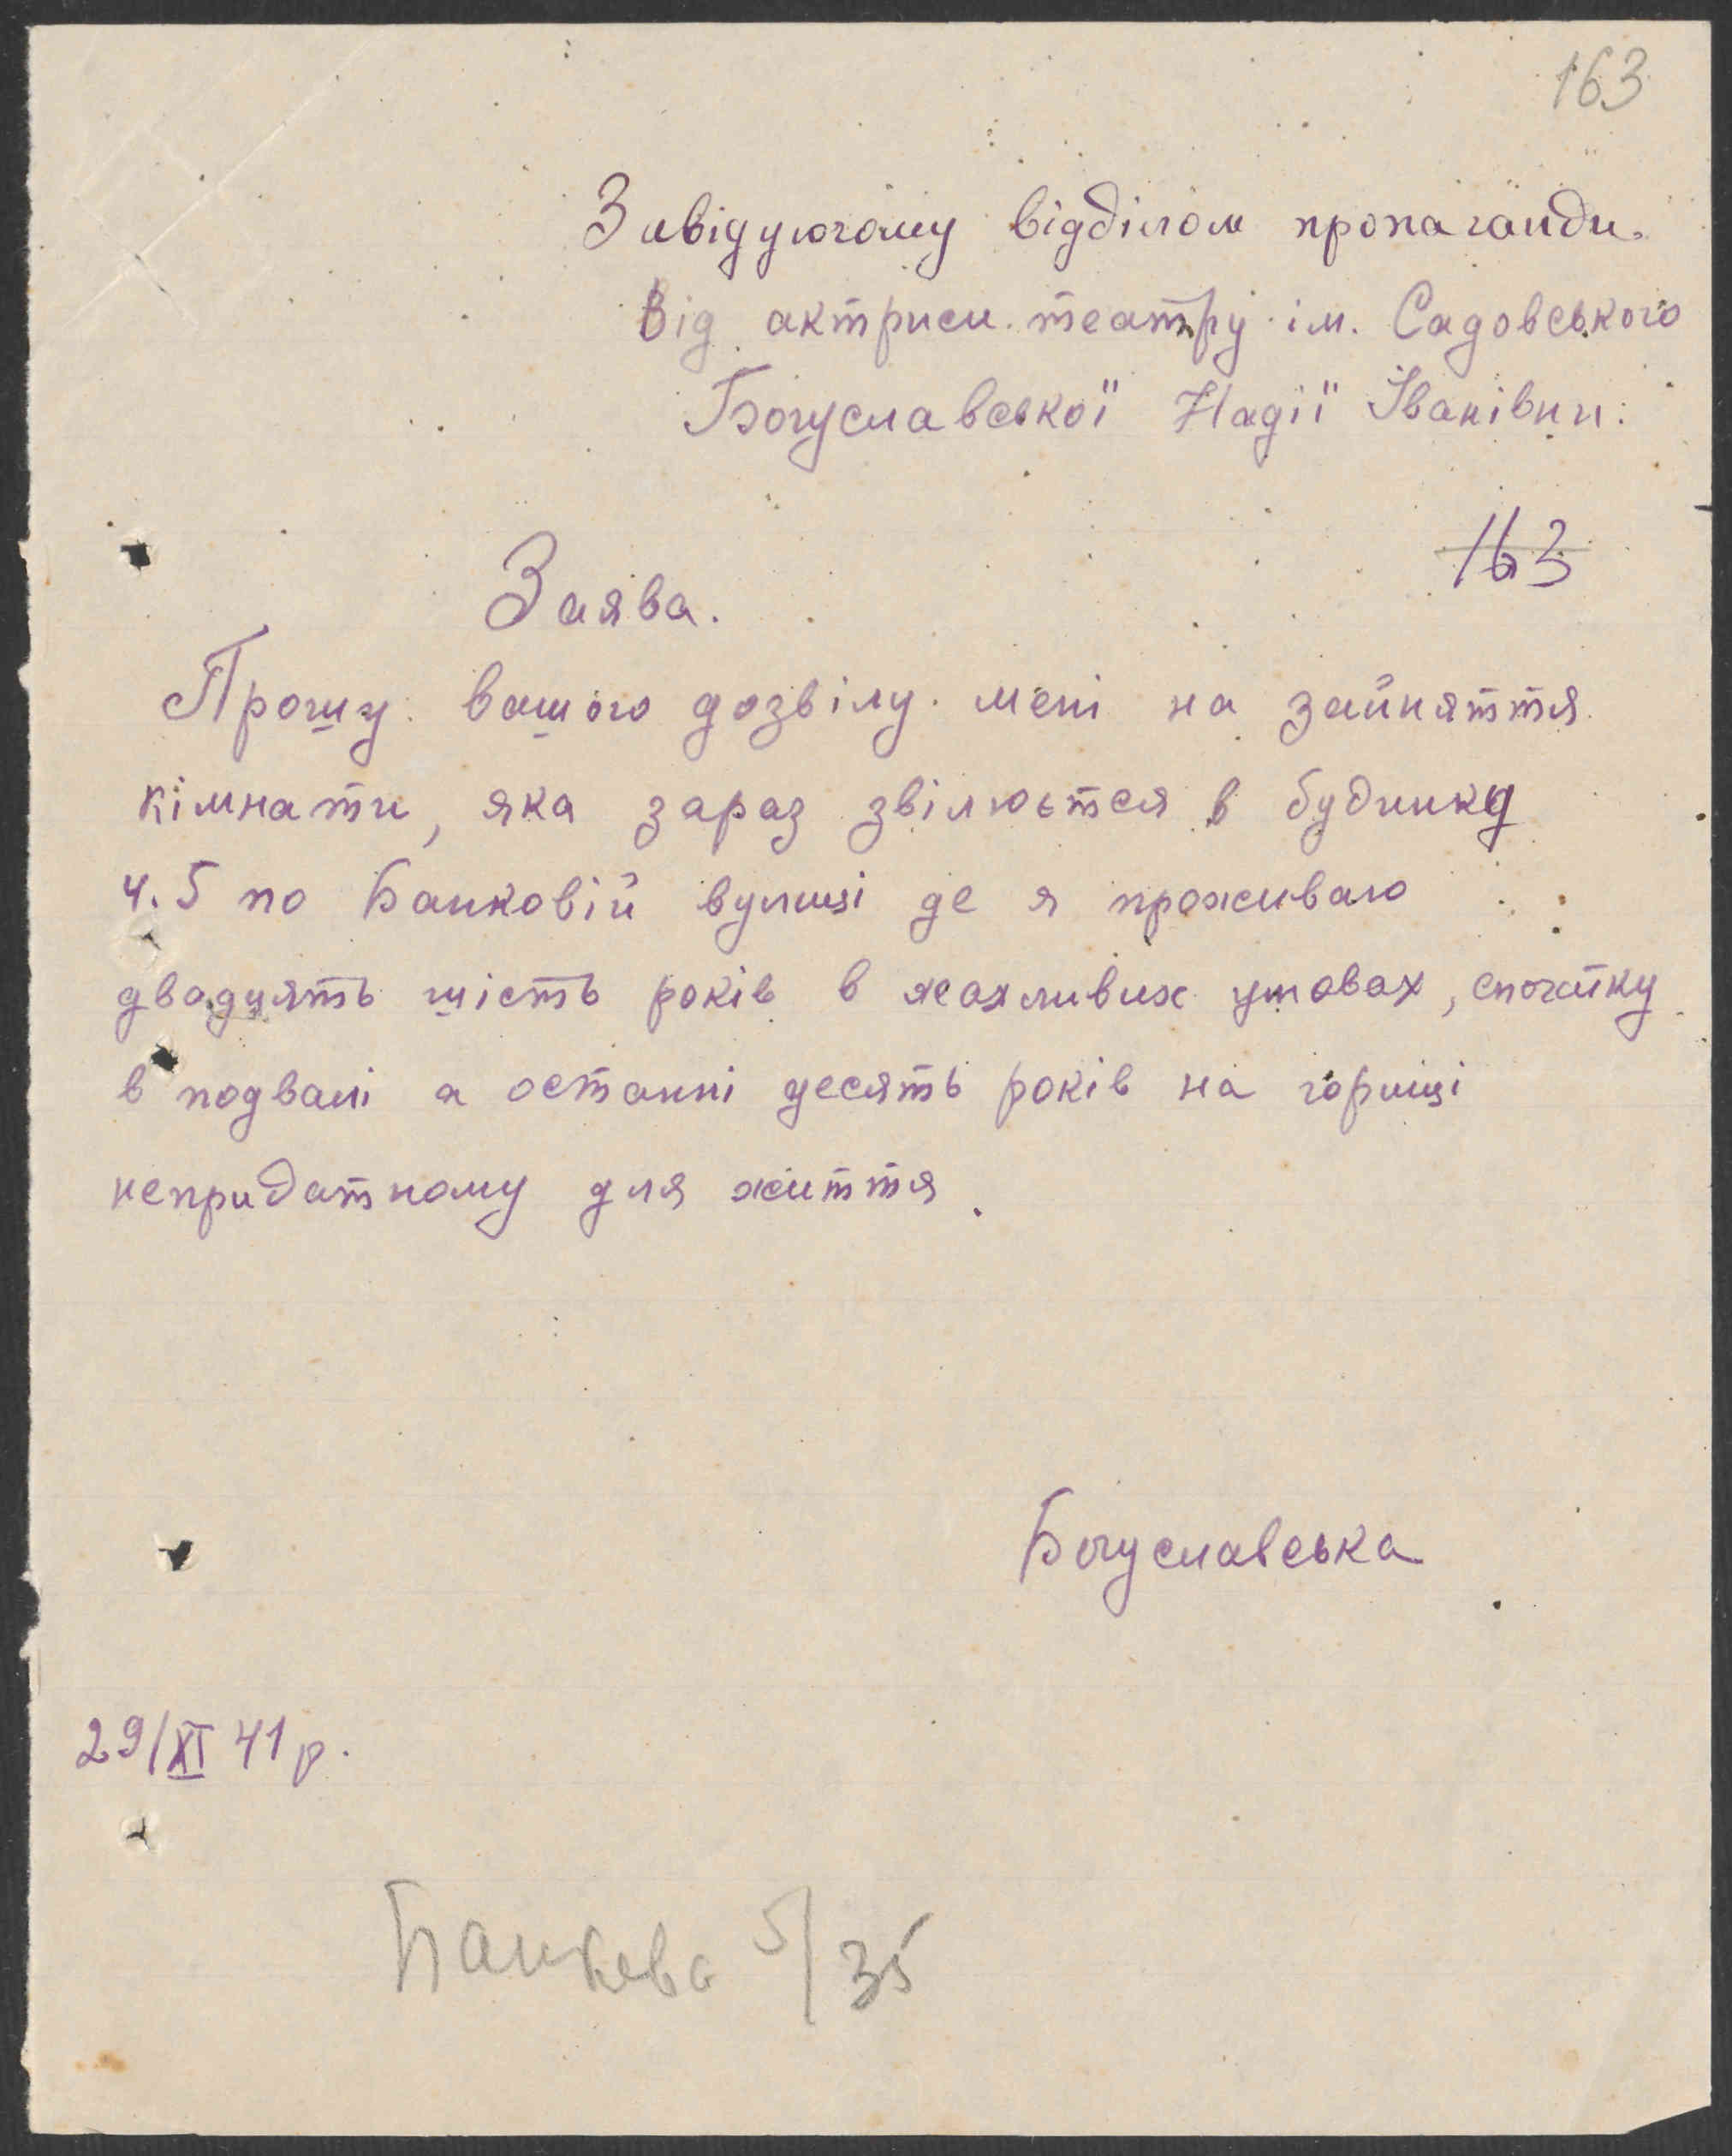 163
Завідуючому відділом пропаганди.
Від актриси театру ім. Садовського
Богуславської Надії Іванівни.
163
Заява.
Прошу вашого дозвілу мені на зайняття
кімнати, яка зараз звілюється в будинку
ч. 5 по Банковій вулиці де я проживаю
двадцять шість років в жахливих умовах, спочатку
в подвалі а останні десять років на горищі
непридатному для життя.
Богуславська
29/XI 41 р.
Банкова 5/35